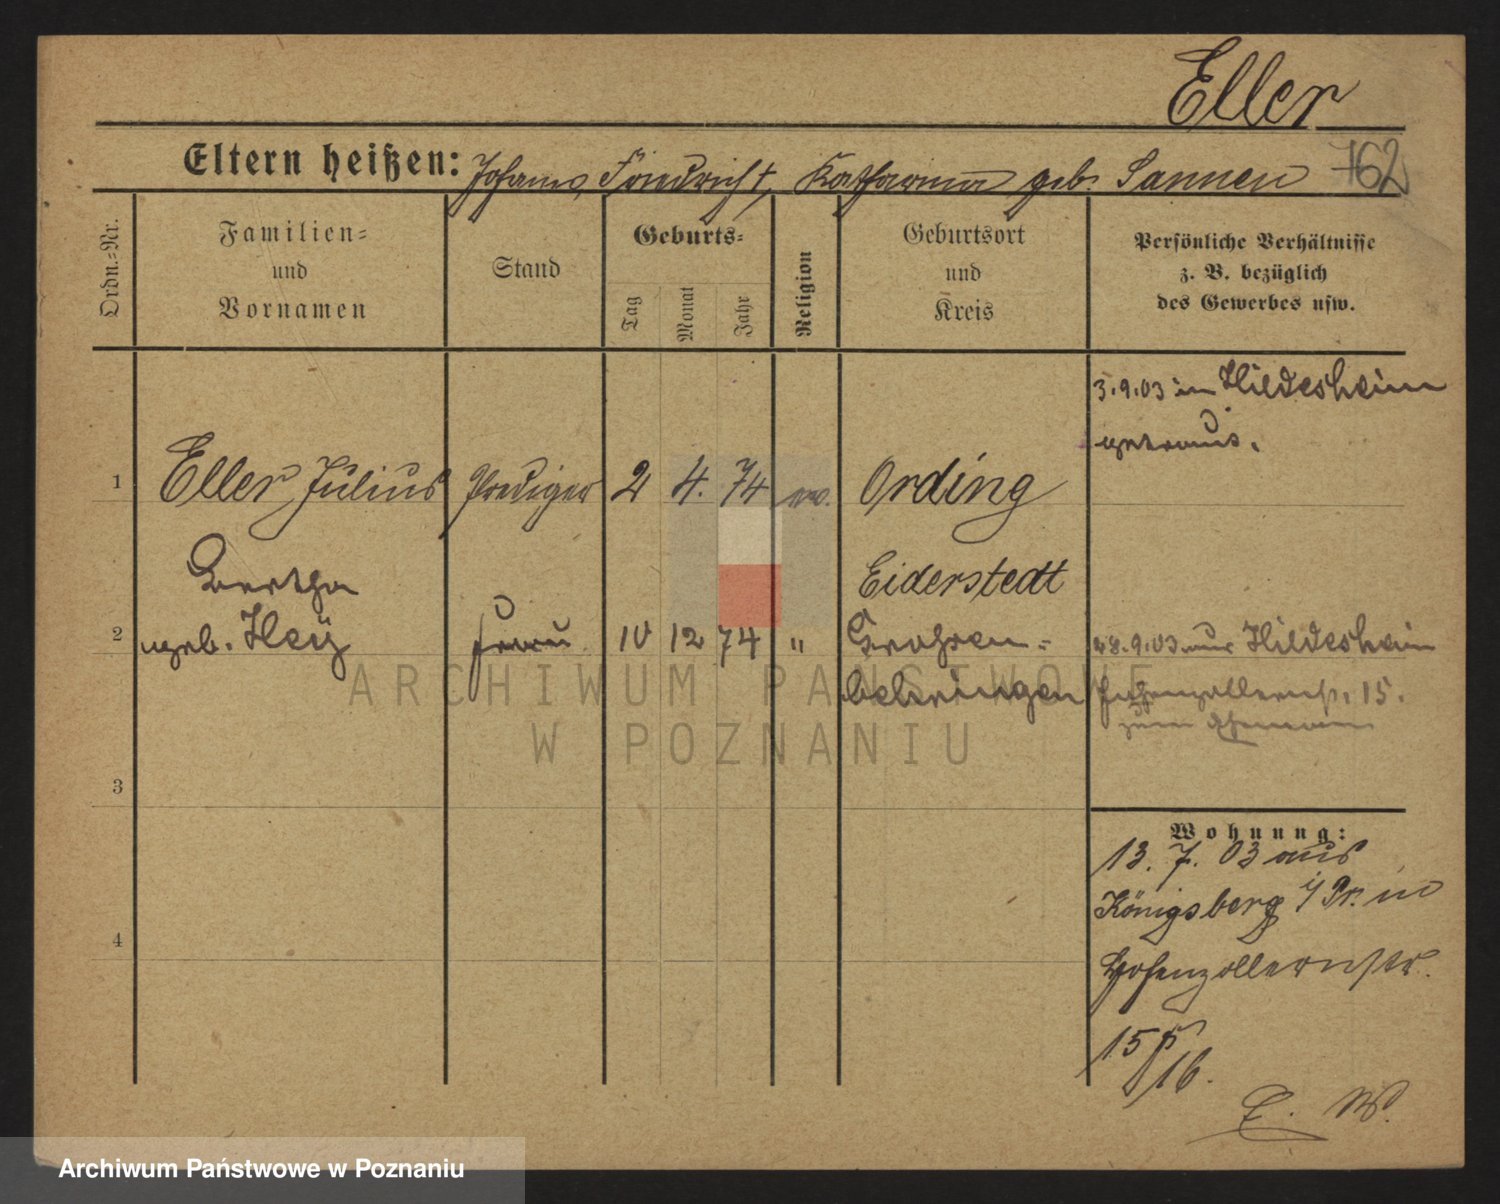 Eller
Eltern heißen: Johann, Friedrich †, Katharina geb. Sannen
762
Ordn.-Nr.
Familien-
und
Vornamen
Stand
Geburts-
Tag
Monat
Jahr
Religion
Geburtsort
und
Kreis
Persönliche Verhältnisse
z. B. bezüglich
des Gewerbes usw.
3.9.03 in Hildesheim
getraut.
1 Eller, Julius Prediger 2 4. 74 ev. Ording
Eiderstedt
Bertha
2 geb. Hey Frau 10 12 74 " Großen-
behringen
28.9.03 aus Hildesheim
Hohenzollernstr. 15.
zum Ehemann
3
4
Wohnung:
13. 7. 03 aus
Königsberg i/Pr. in
Hohenzollernstr.
15
16.
E. W.
ARCHIWUM PAŃSTWOWE
W POZNANIU
Archiwum Państwowe w Poznaniu